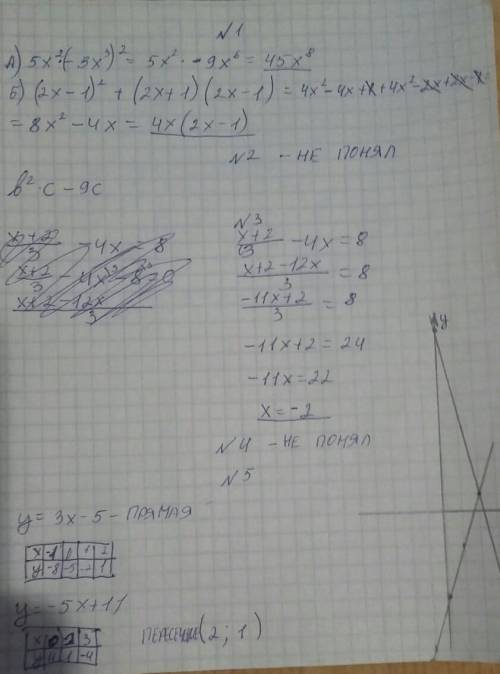 №1
А) 5x²·(-3x³)² = 5x²·-9x⁶ = 45x⁸
Б) (2x-1)² + (2x+1)(2x-1) = 4x²-4x+1+4x²-2x+2x-1
= 8x²-4x = 4x(2x-1)
№2 - НЕ ПОНЯЛ
b²·c-9c
№3
x+2/3 - 4x = 8
x+2/3 - 4x = 8
x+2-12x/3 = 8
x+2-12x/3
-11x+2/3 = 8
-11x+2 = 24
-11x=22
x=-2
№4 - НЕ ПОНЯЛ
№5
y
y= 3x-5 - ПРЯМАЯ
x -1 0 1 2
y -8 -5 1
y=-5x+11
x 2 3
y 11 1 -4
(2; 1)